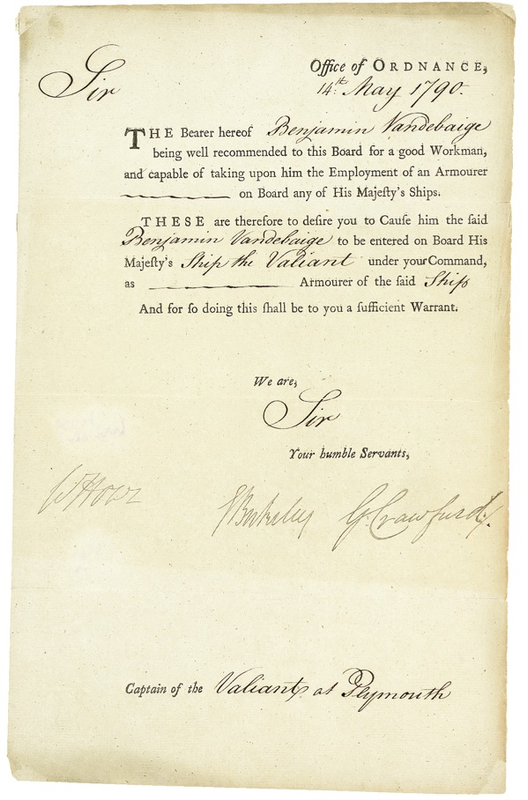 Office of ORDNANCE,
Sir
14th May 1790
THE Bearer hereof Benjamin Vandebaige
being well recommended to this Board for a good Workman,
and capable of taking upon him the Employment of an Armourer
on Board any of His Majeſty's Ships.
THESE are therefore to deſire you to Cauſe him the ſaid
Benjamin Vandebaige to be entered on Board His
Majeſty's Ship the Valiant under your Command,
as Armourer of the ſaid Ship
And for ſo doing this ſhall be to you a ſufficient Warrant.
We are,
Sir
Your humble Servants,
G. Crawfurd.
Captain of the Valiant at Plymouth